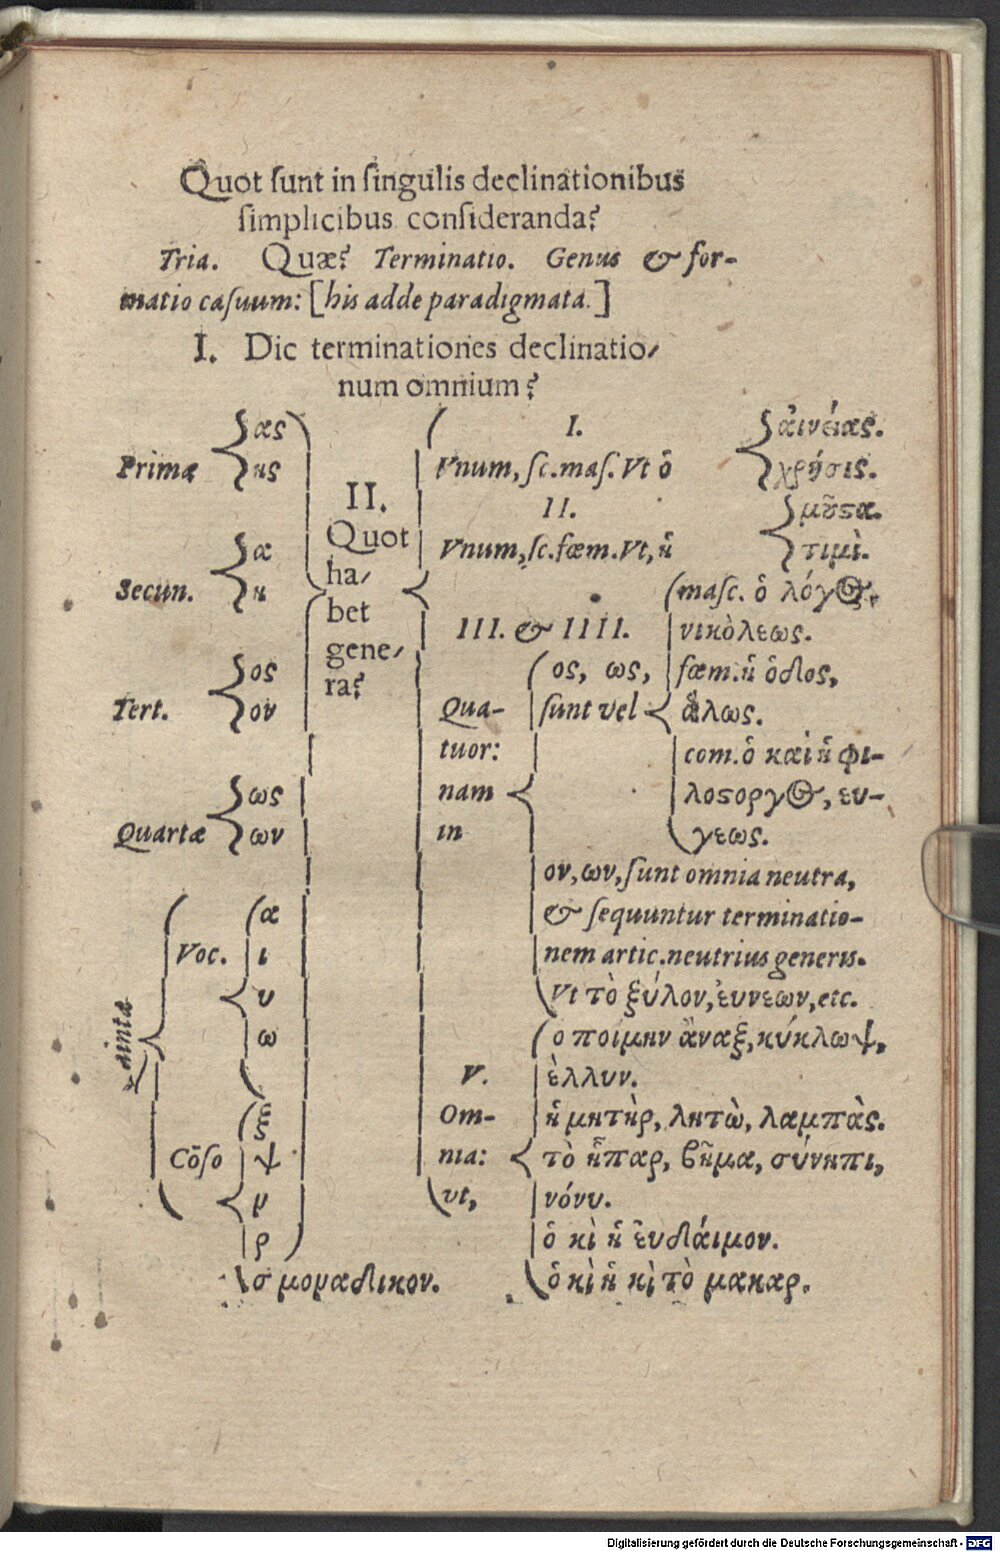 Quot sunt in singulis declinationibus
simplicibus consideranda?
Tria. Quæ? Terminatio. Genus & for-
matio casuum: [his adde paradigmata.]
I. Dic terminationes declinatio-
num omnium?
Primæ
ας
ης
Secun.
α
η
Tert.
ος
ον
Quartæ
ως
ων
Quintæ
Voc.
α
ι
υ
ω
Cōso
ξ
ψ
ν
ρ
σ μοναδικον.
II.
Quot
ha-
bet
gene-
ra?
I.
Vnum, sc. mas. Vt ὁ
ἀινέιας.
χρύσις.
II.
Vnum, sc. fœm. Vt, ἡ
μοῦσα.
τιμὶ.
III. & IIII.
Qua-
tuor:
nam
in
ος, ως,
sunt vel
masc. ὁ λόγος.
νικόλεως.
fœm. ἡ ὁδος,
ἅλως.
com. ὁ καὶ ἡ φι-
λοστοργος, ευ-
γεως.
ον, ων, sunt omnia neutra,
& sequuntur terminatio-
nem artic. neutrius generis.
Vt τὸ ξύλον, ἐυνεων, etc.
V.
Om-
nia:
vt,
ο ποίμην ἄναξ, κύκλωψ,
ἑλλυν.
ἡ μητὴρ, λητὼ, λαμπὰς.
τὸ ἧπαρ, βῆμα, σύνηπι,
νόνυ.
ὁ κὶ ἡ ἐυδάιμον.
ὁ κὶ ἡ κὶ τὸ μακαρ.
Digitalisierung gefördert durch die Deutsche Forschungsgemeinschaft - DFG